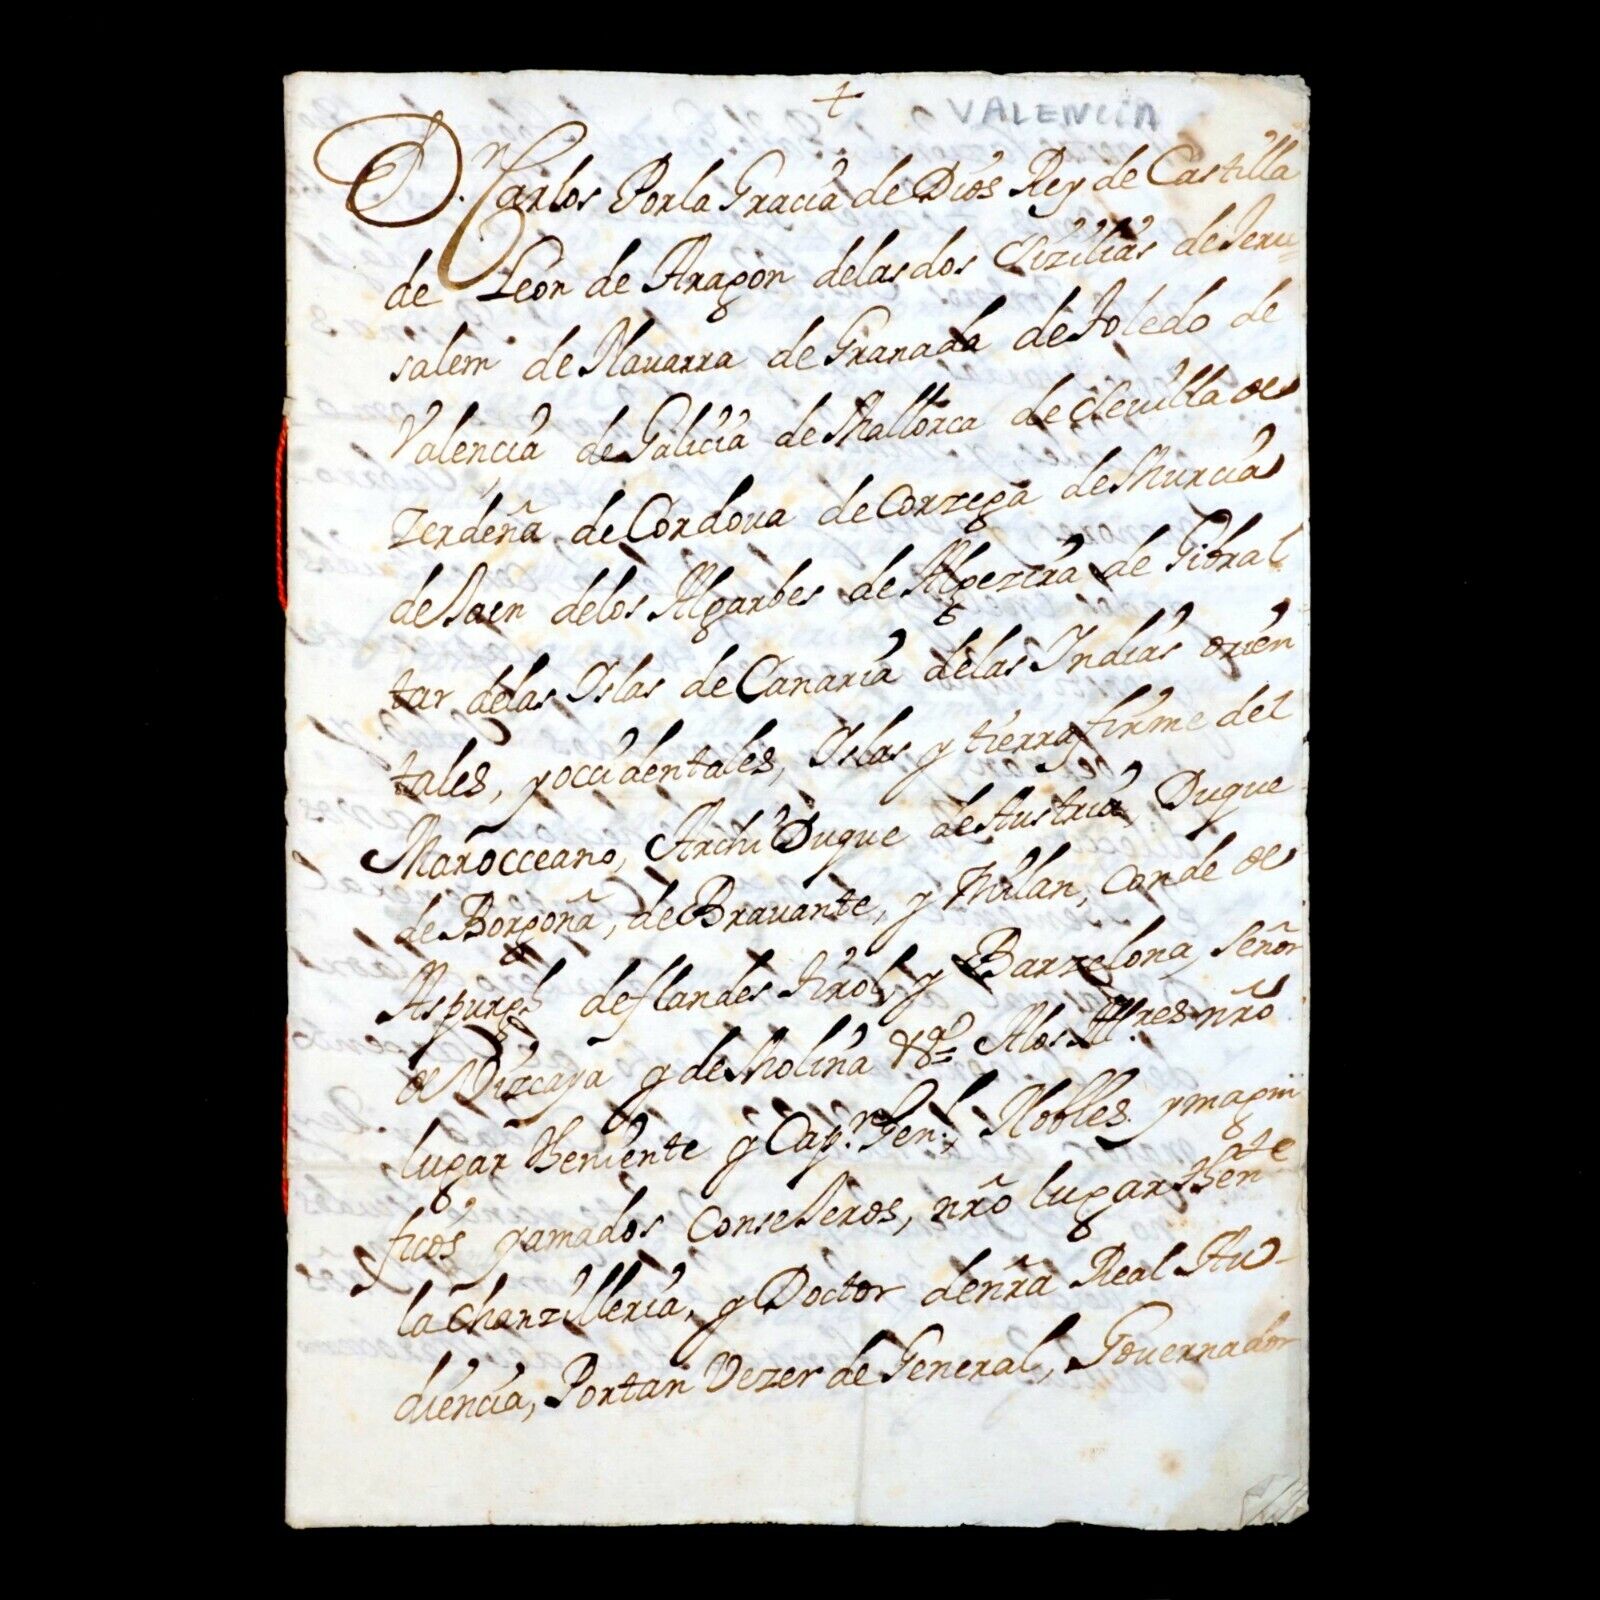 +
VALENCIA
D.n Carlos Por la Gracia de Dios Rey de Castilla
de Leon de Aragon delas dos Cizilias de Jeru=
salem de Nauarra de Granada de Toledo de
Valencia de Galicia de Mallorca de Seuilla de
Zerdeña de Cordoua de Corzega de Murcia
de Jaen delos Algarbes de Algezira de Gibral
tar delas Islas de Canaria delas Indias orien
tales, y occidentales, Islas y tierra firme del
Marocceano, Archi Duque de Austria, Duque
de Borgoña, de Brauante, y Milan, Conde de
Aspurg de flandes tirol, y Barzelona, Señor
de Vizcaya y de Molina &.a Alos Ill.res nrõ
lugar theniente y Cap.n Gen.l Nobles y magni
ficos y amados Conseseros, nrõ lugar then.te
la Chanzilleria, y Doctor denrã Real Au-
diencia, Portan Vezer de General, Gouernador